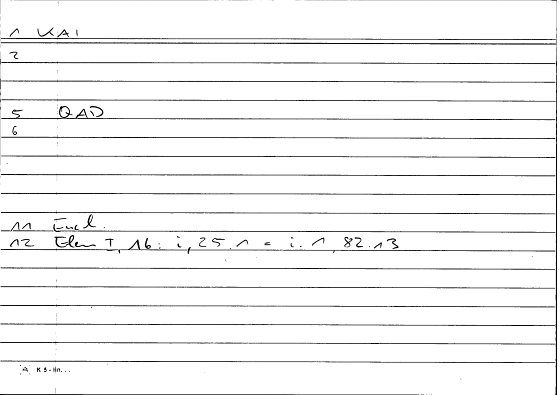 1 KAI
2
5 QAD
6
11 Eucl.
12 Elem I, 16: i, 25.1 = i. 1, 82.13